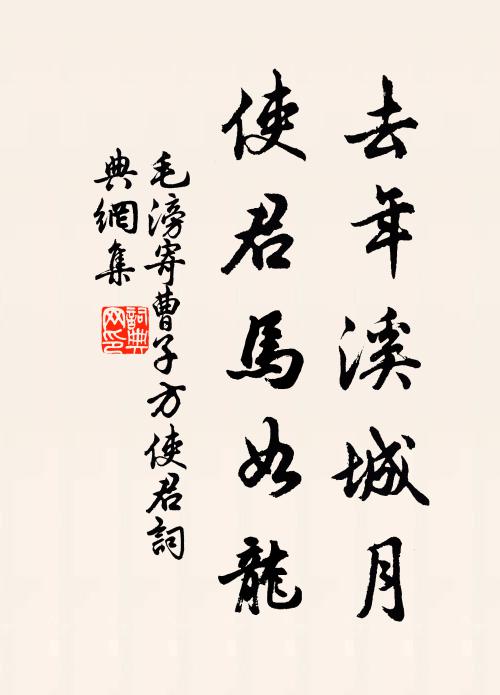 去年溪城月
使君馬如龍
毛滂寄曹子方使君詞
典網集
詞典
网印